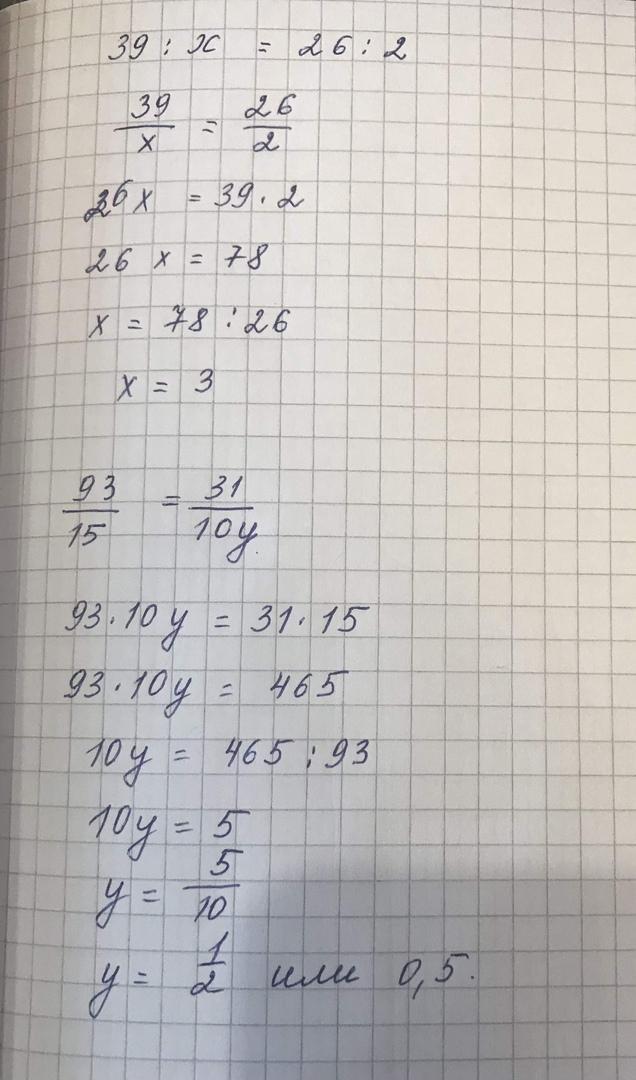 39 : x = 26 : 2
39/x = 26/2
26x = 39·2
26 x = 78
x = 78 : 26
x = 3
93/15 = 31/10y
93·10y = 31·15
93·10y = 465
10y = 465 : 93
10y = 5
y = 5/10
y = 1/2 или 0,5.